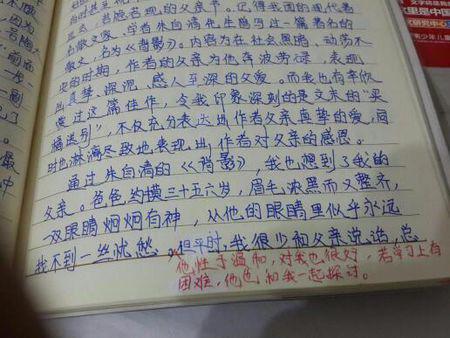 的父亲节。记得我国的现代著
名散文家、学者朱自清先生曾写过一篇著名的
散文,名为《背影》。内容为在社会黑暗、动荡不
安的时期,作者的父亲为他奔波劳碌,表现
出真挚、深沉、感人至深的父爱。而我也有幸
读过这篇佳作,令我印象深刻的是文末的“买
橘送别”,不仅充分表达出作者父亲真挚的爱,同
时也淋漓尽致地表现出作者对父亲的感恩。
通过朱自清的《背影》,我也想到了我的
父亲。爸爸约摸三十五六岁,眉毛浓黑而又整齐,
一双眼睛炯炯有神,从他的眼睛里似乎永远
找不到一丝恍惚。但平时,我很少和父亲说话,总
他性子温和,对我也很好,若学习上有
困难,他也和我一起探讨。
里是中国
研究中心
青少年儿